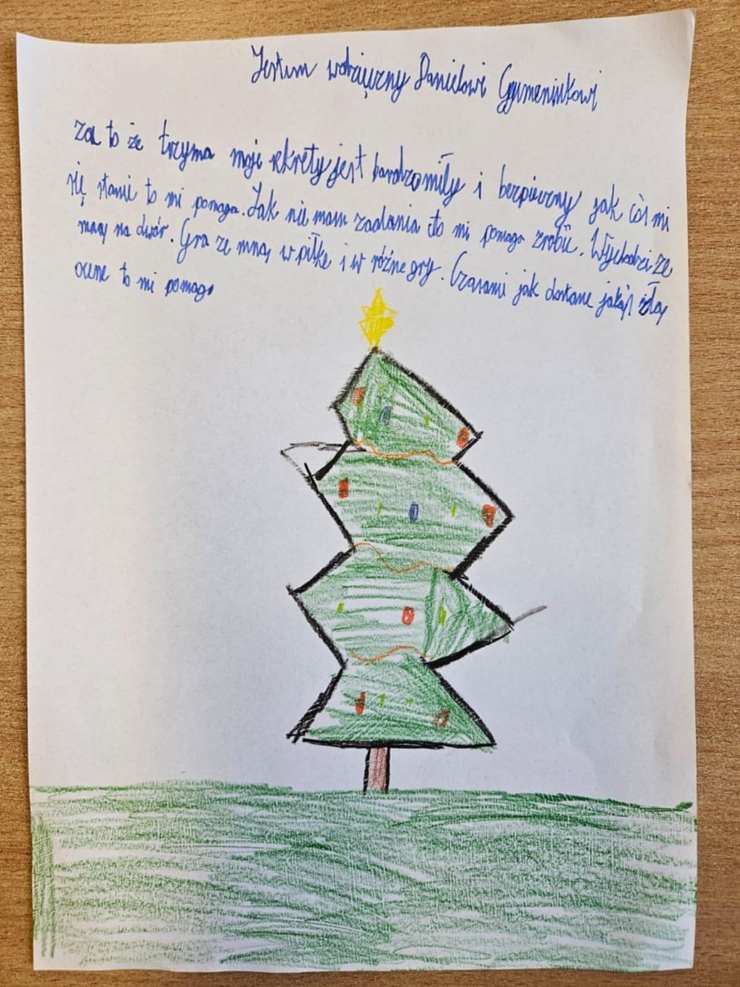 Jestem wdzięczny Danielowi Gymeniukowi
za to że trzyma moje sekrety jest bardzo miły i bezpieczny jak coś mi
się stanie to mi pomaga. Jak nie mam zadania to mi pomaga zrobić. Wychodzi ze
mną na dwór. Gra ze mną w piłke i w różne gry. Czasami jak dostane jakąś złą
ocene to mi pomaga